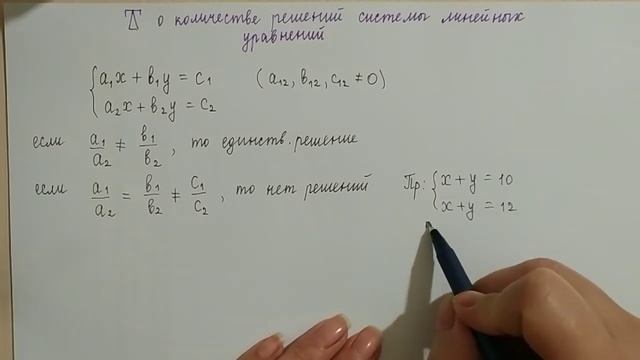 Т о количестве решений системы линейных
уравнений
{ a₁x + b₁y = c₁ (a₁₂, b₁₂, c₁₂ ≠ 0)
a₂x + b₂y = c₂
если a₁/a₂ ≠ b₁/b₂, то единств. решение
если a₁/a₂ = b₁/b₂ ≠ c₁/c₂, то нет решений
Пр: { x + y = 10
x + y = 12